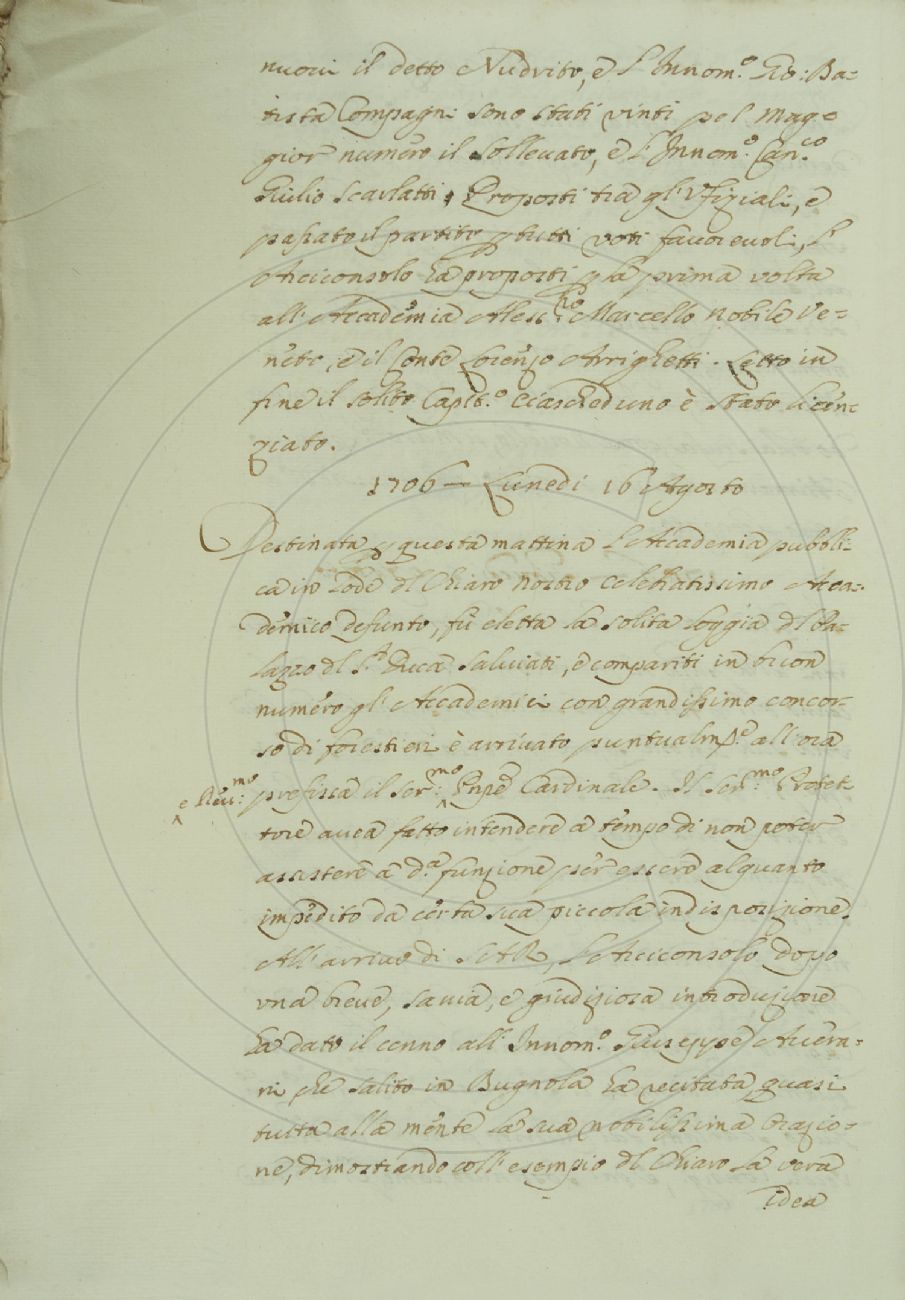 nuovi il detto Nudrito, e l'Innom.º Gio: Ba-
tista Compagni sono stati vinti pel mag-
gior numero il Sollevato, e l'Innom.º Can.co
Giulio Scarlatti, Proposti tra gl'Ufiziali, e
passato il partito p tutti voti favorevoli, l'
Arciconsolo ha proposti p la prima volta
all'Accademia Aless:ro Marcello Nobile Ve-
neto, e il Conte Lorenzo Arrighetti. Letto in
fine il solito Capit.º Ciascheduno è stato licen-
ziato.
1706 — Lunedì 16 Agosto
Destinata p questa mattina l'Accademia pubbli-
ca in lode dl Chiaro nostro celebratissimo Acca-
demico defunto, fu eletta la solita loggia dl Pa-
lazzo dl S.r Duca Salviati, e compariti in buon
numero gl'Accademici con grandissimo concor-
so di forestieri è arrivato puntualmte all'ora
e Rev:mo
prefissa il Ser:mo Pnpe Cardinale. Il Ser:mo Protet-
tore avea fatto intendere a tempo di non poter
assistere a d.a funzione per essere alquanto
impedito da certa sua piccola indisposizione.
All'arrivo di S.A.R., l'Arciconsolo dopo
una breve, savia, e giudiziosa introduzione
ha dato il cenno all'Innom.º Giuseppe Avera-
ni che salito in Bugnola ha recitata quasi
tutta alla mente la sua nobilissima Orazio-
ne, dimostrando coll'esempio dl Chiaro la vera
idea